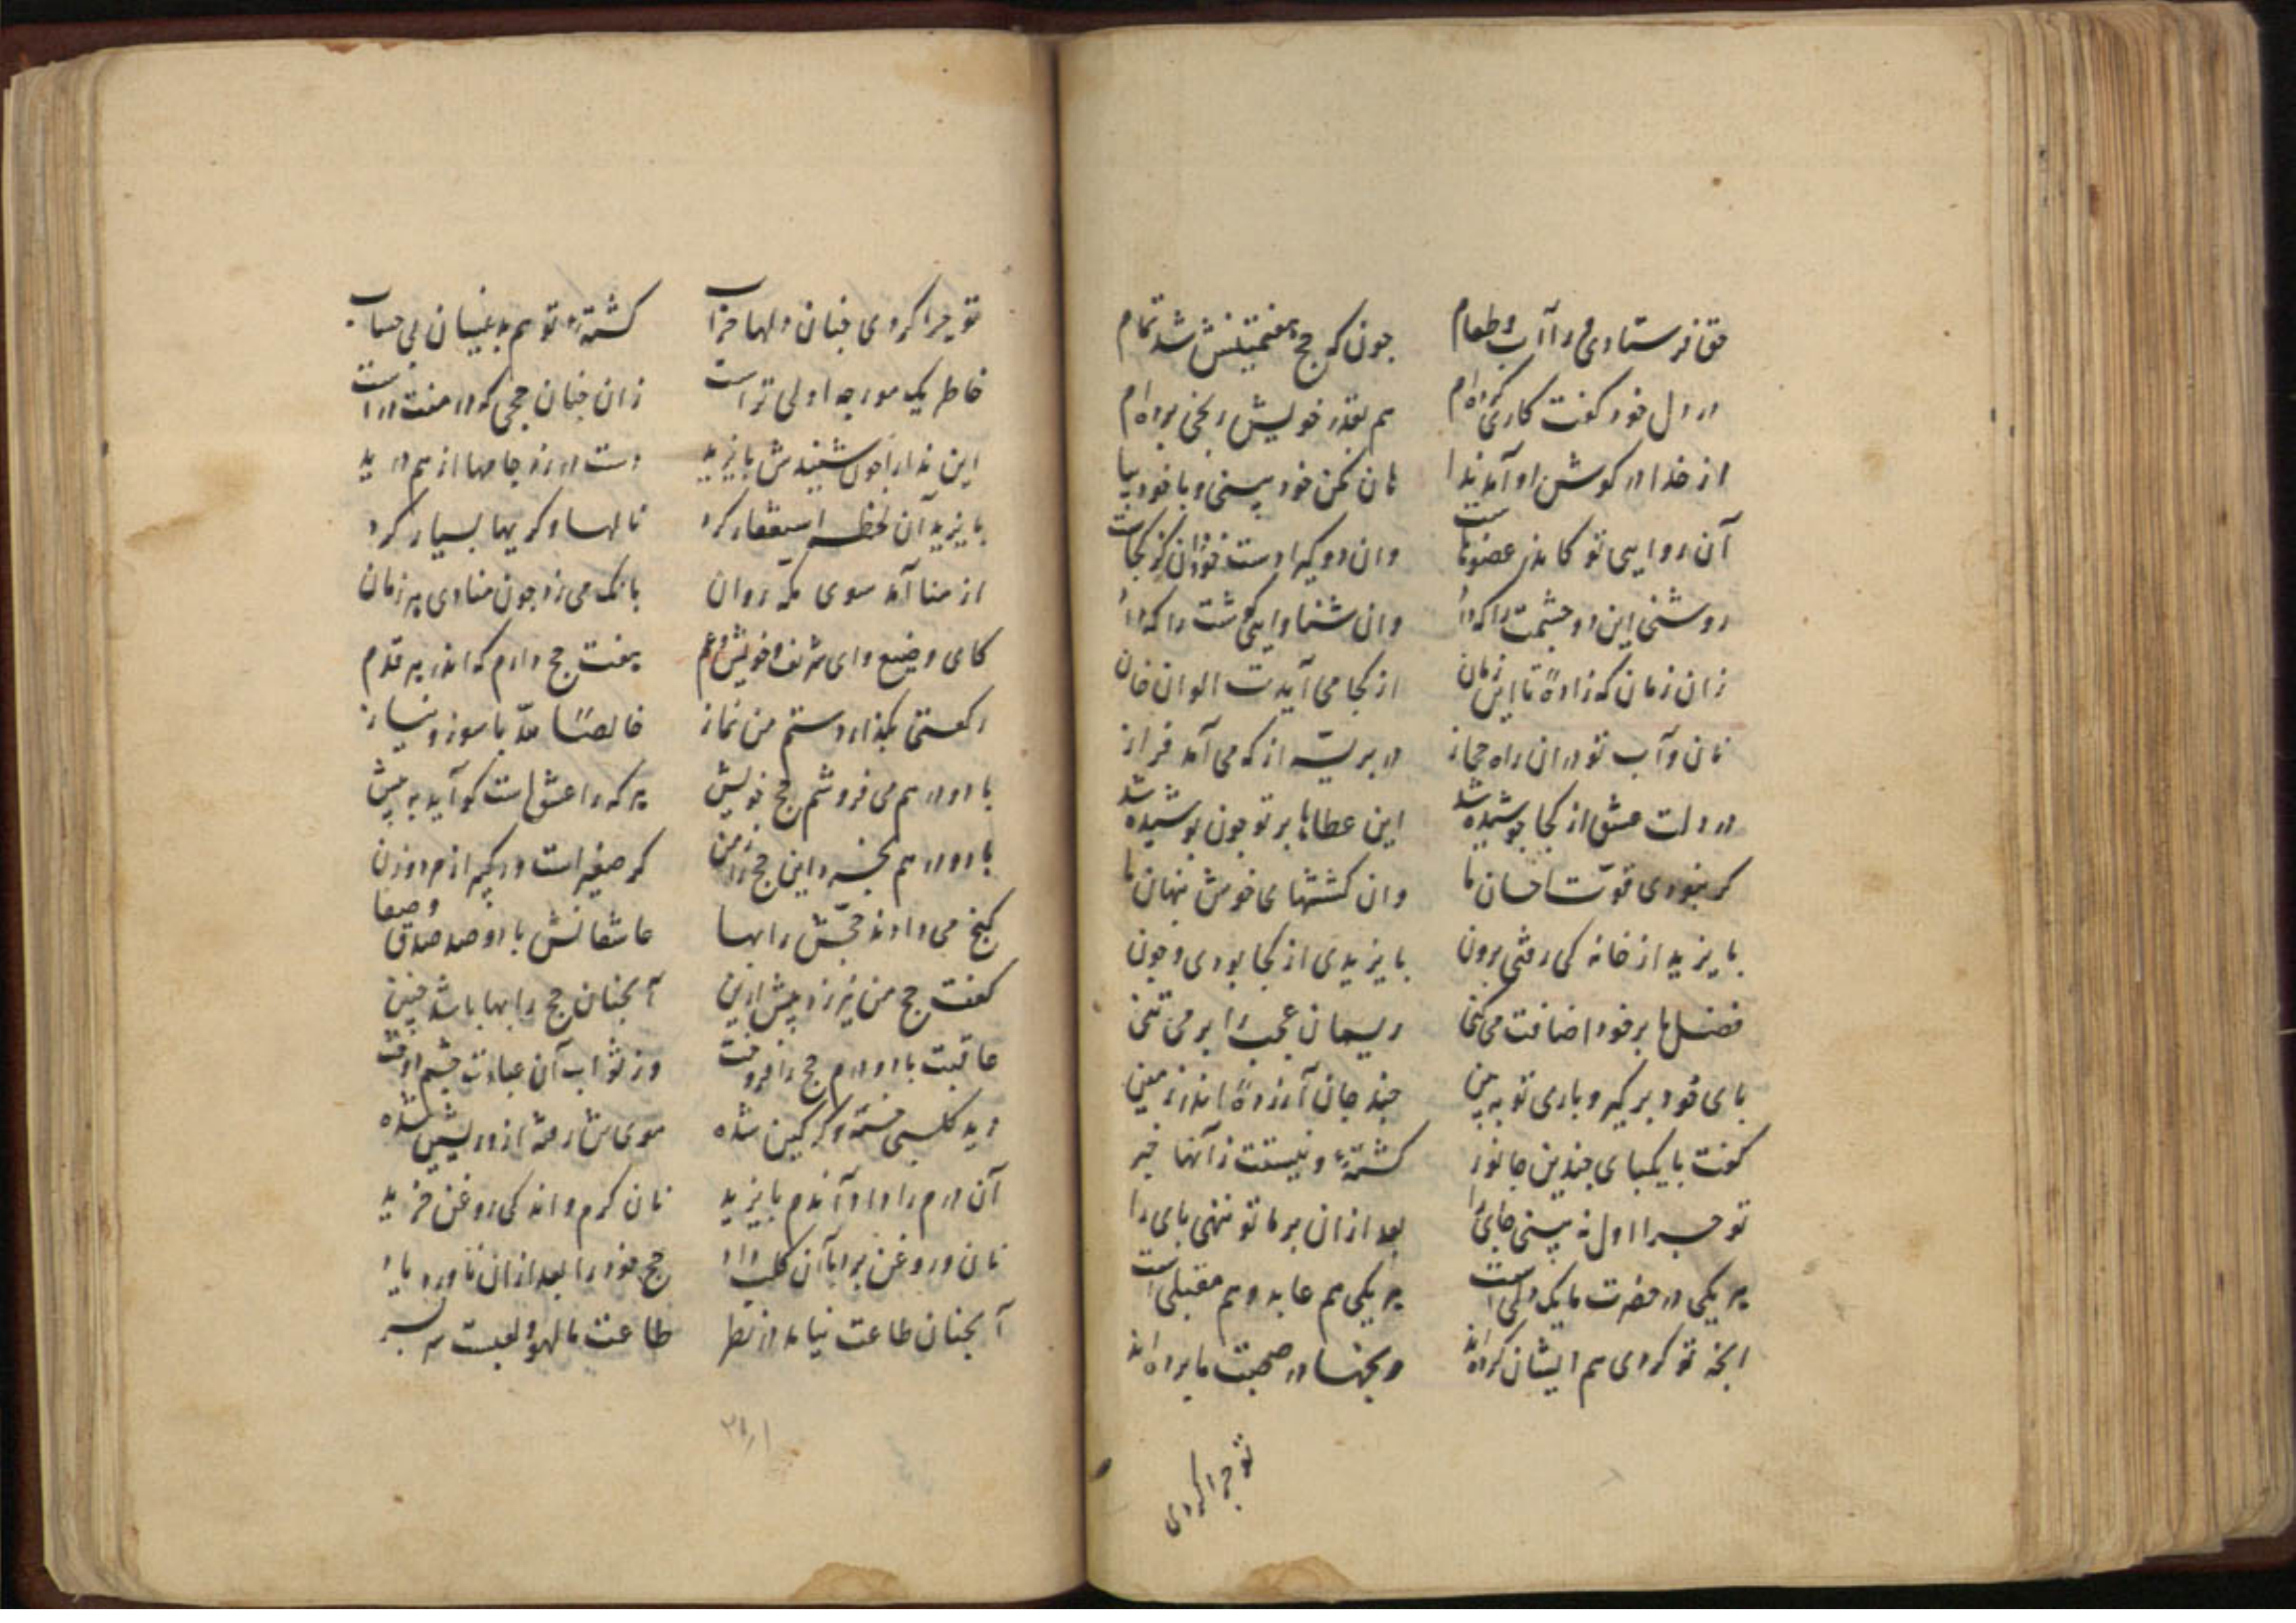 حق فرستادی ورا آب و طعام جون که حج هفتمینش شد تمام
در دل خود کفت کاری کرده‌ام هم بقدر خویش رنجی برده‌ام
از خدا در کوش او آمد ندا هان مکن خود بینی و با خود بیا
آن روایی تو کاندر عضوهاست وان دو کیرا دست خود دان کز کجاست
روشنی این دو چشمت را که داد وان شنوایی کوشت را که داد
زان زمان که زادهٔ تا این زمان از کجا می آیدت الوان خان
نان و آب تو دران راه حجاز در بریّه از که می آمد فراز
در دلت عشق از کجا جوشیده شد این عطاها بر تو جون پوشیده شد
کر نبودی قوّت احسان ما وان کششهای خوش پنهان ما
بایزید از خانه کی رفتی برون بایزیدی از کجا بودی و جون
فضلها بر خود اضافت می کنی ریسمان عجب را بر می تنی
بای خود بر کیر و باری تو به بین جند جان آزردهٔ اندر زمین
کفت با یکبای جندین جانور کشتهٔ و نیستت زآنها خبر
تو جرا اول نه بینی جای را بعد ازان برما تو ننهی بای را
هر یکی در حضرت ما یک دلی است هر یکی هم عابد و هم مقبلی است
انجه تو کردی هم ایشان کرده‌اند رنجها در صحبت ما برده‌اند
تو جرا کردی
تو جرا کردی جنان دلها خراب کشتهٔ تو هم به عیسان بی حساب
خاطر یک مورجه اولی تر است زان جنان حجی که در هفت در است
این ندارا جون شنیدش بایزید دست در زد جامها از هم درید
بایزید آن لحظه استغفار کرد نالها و کریها بسیار کرد
از منا آمد سوی مکه روان بانک می زد جون منادی هر زمان
کای وضیع وای شریف و خویش و عم هفت حج دارم که اندر هر قدم
رکعتی بکذاردستم من نماز خالصًا لله با سوز و نیاز
با دو درهم می فروشم حج خویش هر که را عشق است کو آید به پیش
با دو درهم بخرد این حج را زمن کر صغیر است ور کبیر از مرد و زن
کنج می دادند حجّش را بها عاشقانش با دو صد صدق و صفا
کفت حج من نیرزد بیش ازین آنجنان حج را بها باشد جنین
عاقبت با دو درم حج را فروخت وز ثواب آن عبادت جشم دوخت
دید کلبی خسته و کرکین شده موی تن رفته ازو ریشین شده
آن درم را داد آندم بایزید نان کرم و اندکی روغن خرید
نان و روغن برد با آن کلب داد حج خود را بعد ازان ناورد یاد
آنجنان طاعت نیامد در نظر طاعت ما لهو و لعبست سر بسر